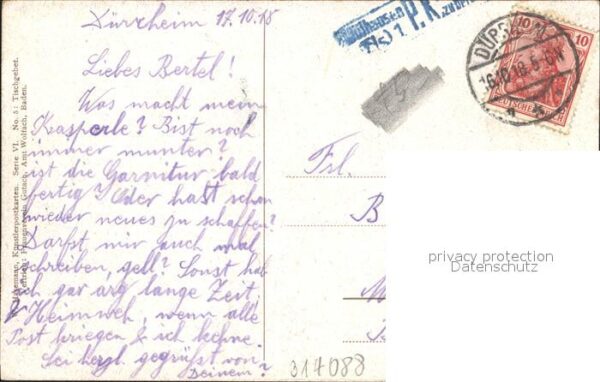 Dürrheim 17.10.18
Liebes Bertel!
Was macht mein
Kasperle? Bist noch
immer munter?
ist die Garnitur bald
fertig? Oder hast schon
wieder neues zu schaffen?
Darfst mir auch mal
schreiben, gell? Sonst hab
ich gar arg lange Zeit,
Heimweh, wenn alle
Post kriegen & ich keine.
Sei herzl. gegrüßt von?
Deinem?
Künstlerpostkarten. Serie VI. No. 5: Tischgebet.
Frauenverein Gutach, Amt Wolfach, Baden.
P.K.
10 10
DEUTSCHES REICH
16.10.18.5-6N
Frl.
B
privacy protection
Datenschutz
317088